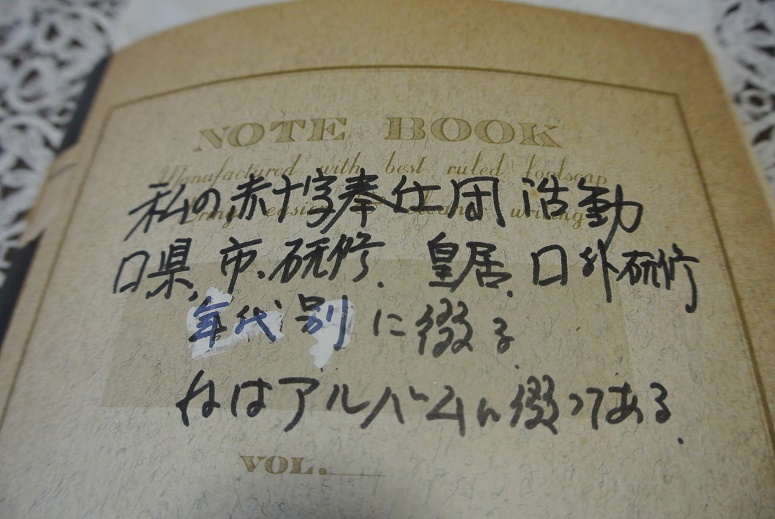 NOTE BOOK
Manufactured with best ruled foolscap
私の赤十字奉仕団活動
writing
口県、市、研修、皇居、口外研修
年代別に綴る
はアルバムに綴ってある.
VOL.